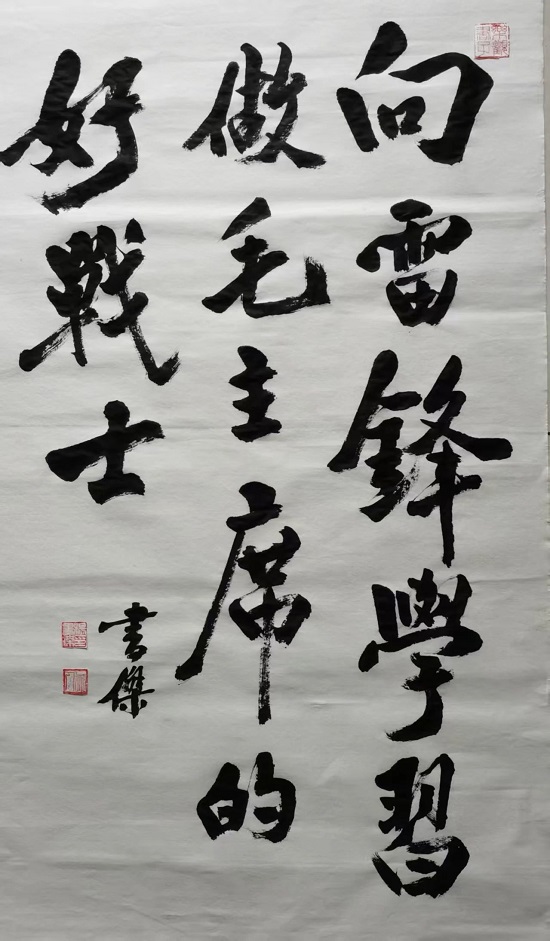 向雷鋒學習
做毛主席的
好戰士
書傑